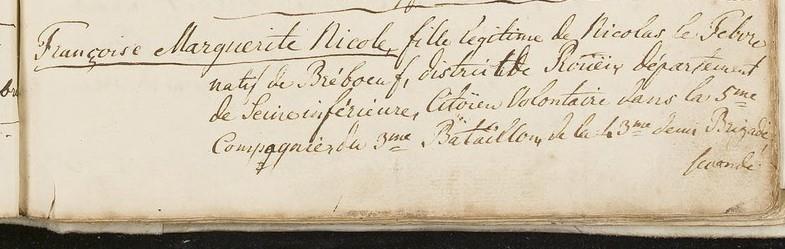 Françoise Marguerite Nicole, fille légitime de Nicolas le Febvre
natif de Bréboeuf, district de Roüen département
de Seine inférieure, Citöien Volontaire dans la 5me
Compagnie du 3me Bataillon, de la 43me demi Brigade
seconde